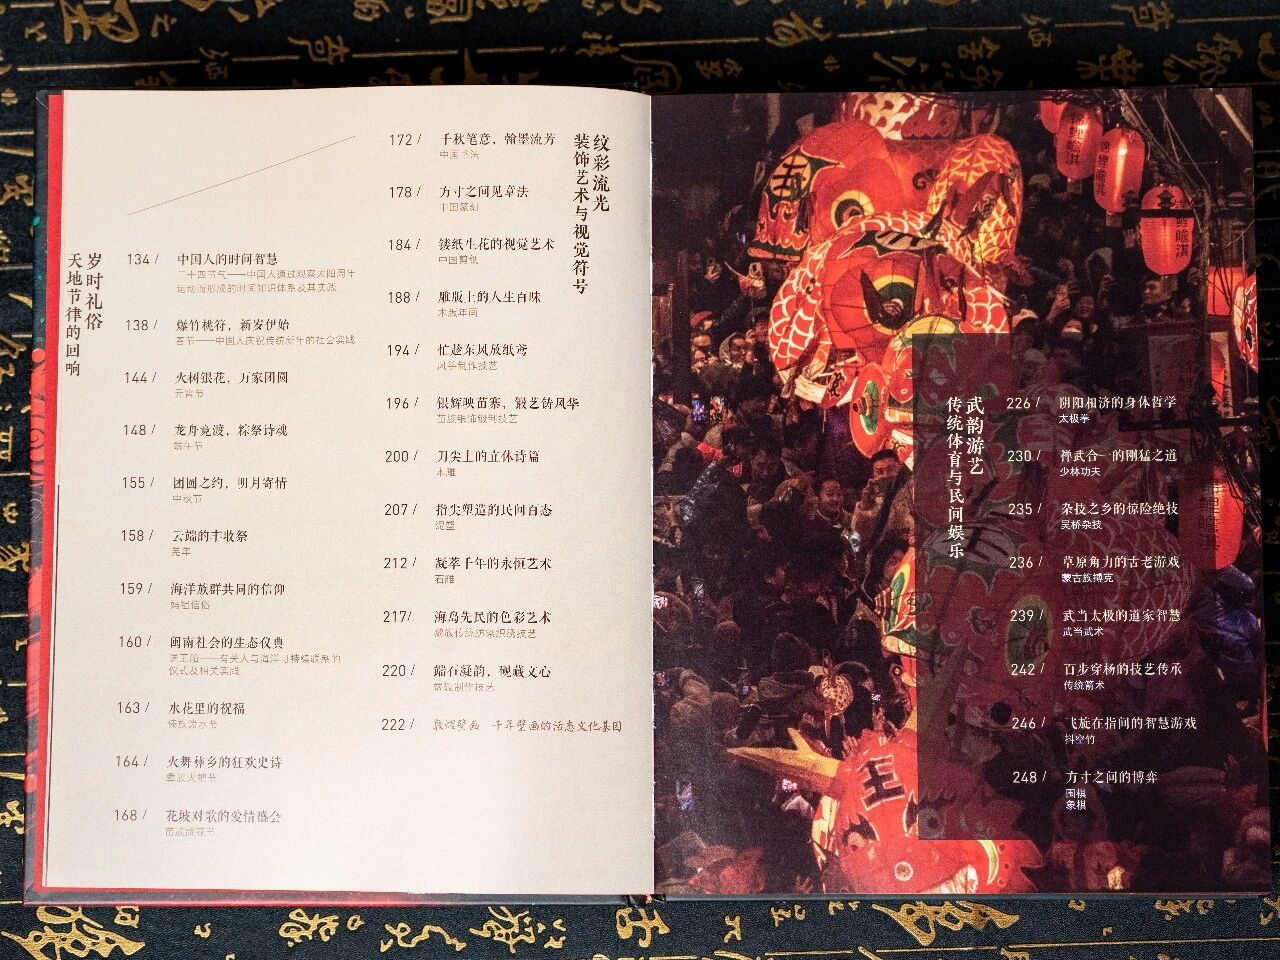 岁时礼俗
天地节律的回响
134 / 中国人的时间智慧
二十四节气——中国人通过观察太阳周年
运动而形成的时间知识体系及其实践
138 / 爆竹桃符，新岁伊始
春节——中国人庆祝传统新年的社会实践
144 / 火树银花，万家团圆
元宵节
148 / 龙舟竞渡，粽祭诗魂
端午节
155 / 团圆之约，明月寄情
中秋节
158 / 云端的丰收祭
羌年
159 / 海洋族群共同的信仰
妈祖信俗
160 / 闽南社会的生态仪典
送王船——有关人与海洋可持续联系的
仪式及相关实践
163 / 水花里的祝福
傣族泼水节
164 / 火舞彝乡的狂欢史诗
彝族火把节
168 / 花坡对歌的爱情盛会
苗族跳花节
纹彩流光
装饰艺术与视觉符号
172 / 千秋笔意，翰墨流芳
中国书法
178 / 方寸之间见章法
中国篆刻
184 / 镂纸生花的视觉艺术
中国剪纸
188 / 雕版上的人生百味
木版年画
194 / 忙趁东风放纸鸢
风筝制作技艺
196 / 银辉映苗寨，锻艺铸风华
苗族银饰锻制技艺
200 / 刀尖上的立体诗篇
木雕
207 / 指尖塑造的民间百态
泥塑
212 / 凝萃千年的永恒艺术
石雕
217/ 海岛先民的色彩艺术
黎族传统纺染织绣技艺
220 / 端石凝韵，砚藏文心
端砚制作技艺
222 / 敦煌壁画 千年壁画的活态文化基因
武韵游艺
传统体育与民间娱乐
226 / 阴阳相济的身体哲学
太极拳
230 / 禅武合一的刚猛之道
少林功夫
235 / 杂技之乡的惊险绝技
吴桥杂技
236 / 草原角力的古老游戏
蒙古族搏克
239 / 武当太极的道家智慧
武当武术
242 / 百步穿杨的技艺传承
传统箭术
246 / 飞旋在指间的智慧游戏
抖空竹
248 / 方寸之间的博弈
围棋
象棋
王